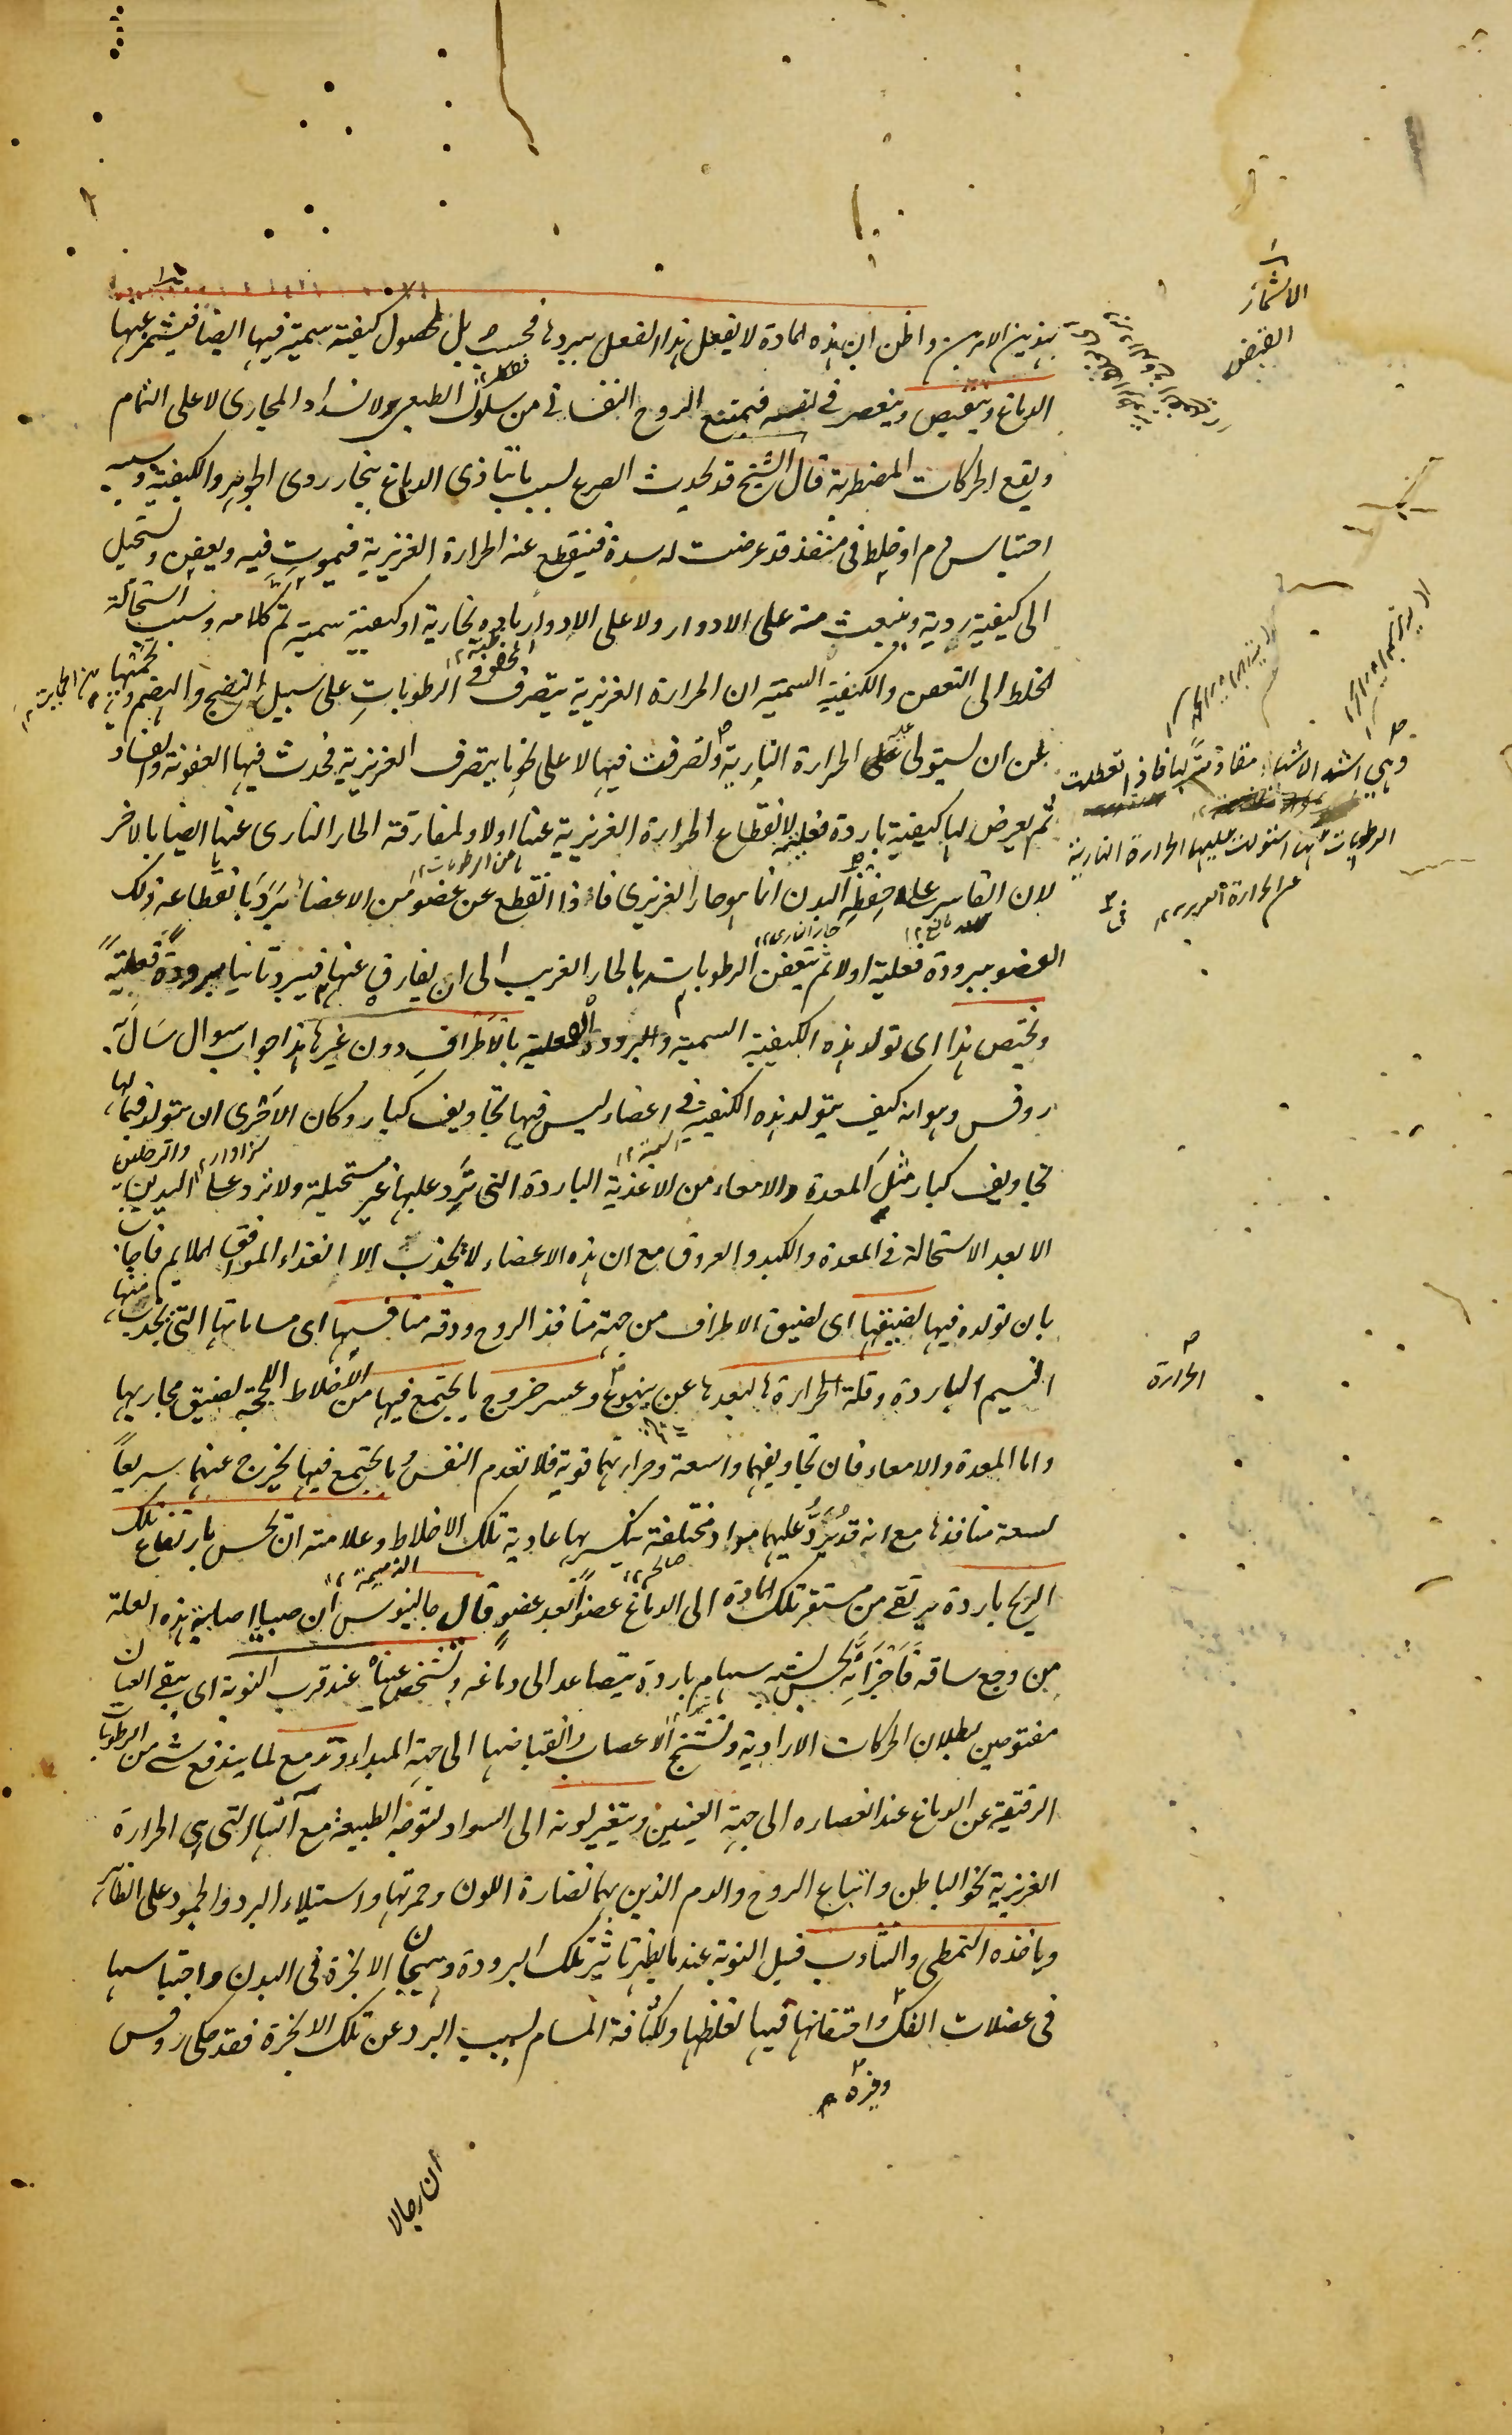 بهذين الامرين واظن ان هذه المادة لا يفعل هذا الفعل ببردها فحسب بل لحصول كيفية سمية فيها ايضا فيشمئز عنها
الدماغ وينقبض وينعصر في نفسه فيمتنع الروح النفساني من سلوك الطبيعي ولانسداد المجاري لا على التمام
ويقع الحركات المضطربة قال الشيخ قد يحدث الصرع بسبب ما يتأذى الدماغ ببخار ردى الجوهر والكيفية وسببه
احتباس دم او خلط في منفذ قد عرضت له سدة فينقطع عنه الحرارة الغريزية فيموت فيه ويعفن ويستحيل
الى كيفية ردية وينبعث منه على الادوار ولا على الادوار مادة بخارية او كيفية سمية تم كلامه وسبب استحالة
الخلط الى التعفن والكيفية السمية ان الحرارة الغريزية يتصرف في الرطوبات على سبيل النضج والهضم ويحميها
عن ان يستولى على الحرارة النارية وتصرفت فيها لا على نحو ما يتصرف الغريزية فحدث فيها العفونة والفساد
ثم يعرض لها كيفية باردة فعلية لانقطاع الحرارة الغريزية عنها اولا ولمفارقة الحار الناري عنها ايضا بالاخر
لان القاسر على حفظ البدن انما هو حار الغريزي فاذا انقطع عن عضو من الاعضاء برد بانقطاعه ذلك
العضو ببرودة فعلية اولا ثم يتعفن الرطوبات بالحار الغريب الى ان يفارق عنها فيبرد ثانيا برودة فعلية
ويختص هذا اى تولد هذه الكيفية السمية والبرودة الفعلية بالاطراف دون غيرها هذا جواب سوال ساله
روفس وهو انه كيف يتولد هذه الكيفية في اعضاء ليس فيها تجاويف كبار وكان الاحرى ان يتولد فيما لها
تجاويف كبار مثل المعدة والامعاء من الاغذية الباردة التي ترد عليها غير مستحيلة ولا ترد على اليدين والرجلين
الا بعد الاستحالة في المعدة والكبد والعروق مع ان هذه الاعضاء لا يجذب الا الغذاء الموافق الملايم فاجاب
بان تولده فيها لضيقها اى لضيق الاطراف من جهة منافذ الروح ودقة منافسها اى مساماتها التي يجذب منها
النسيم الباردة وقلة الحرارة لبعدها عن ينبوع وعسر خروج ما يجتمع فيها من الاخلاط اللحجة لضيق مجاريها
واما المعدة والامعاء فان تجاويفهما واسعة وحرارتهما قوية فلا تعدم النفس وما يجتمع فيها يخرج عنهما سريعاً
لسعة منافذها مع انه قد يرد عليهما مواد مختلفة تنكسر بها عادية تلك الاخلاط وعلامته ان يحس بارتفاع تلك
الريح باردة يرتقى من مستقر تلك المادة الى الدماغ عضواً بعد عضو قال جالينوس ان صبيا اصابته هذه العلة
من وجع ساقه فاخبر انه يحس بشبه سهام باردة يتصاعد الى دماغه وتشخص عيناه عند قرب النوبة اى يبقى العينان
مفتوحين لبطلان الحركات الارادية وتشنج الاعصاب وانقباضها الى جهة المبداء وتدمع لما يندفع شى من الرطوبات
الرقيقة عن الدماغ عند انعصاره الى جهة العينين ويتغير لونه الى السواد لتوجه الطبيعة مع آلتها التي هي الحرارة
الغريزية نحو الباطن واتباع الروح والدم الذين بهما نضارة اللون وحمرتها واستيلاء البرد والجمود على الظاهر
وياخذه التمطى والتثاوب قبل النوبة عند ما يظهر تاثير تلك البرودة وهيجان الابخرة في البدن واحتباسها
في عضلات الفك واحتقانها فيها لغلظها ولكثافة المسام بسبب البرد عن تلك الابخرة فقد حكى روفس
وغيره
ان رجالا
الاشمئزاز
القبض
وهي اشد الاشياء مقاومة لها فاذا تعطلت
الرطوبات استولت عليها الحرارة النارية
الحرارة